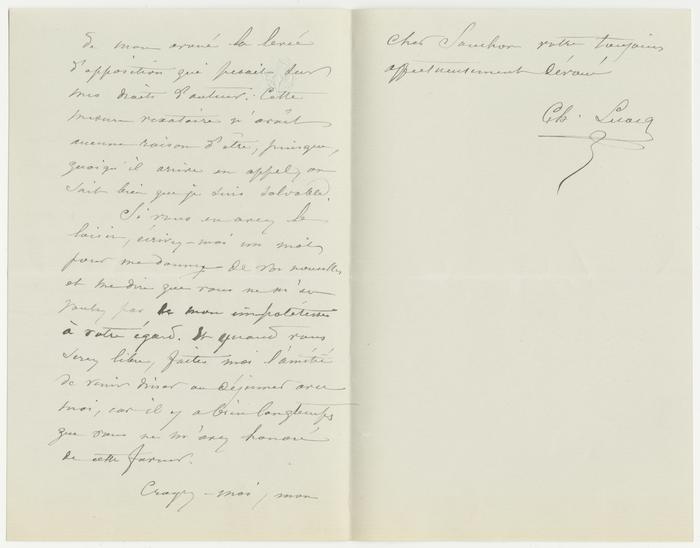 de mon avoué la levée
d'opposition qui pesait sur
mes droits d'auteur. Cette
mesure vexatoire n'avait
aucune raison d'être, puisque,
quoiqu'il arrive en appel, on
sait bien que je suis solvable.
Si vous en avez le
loisir, écrivez-moi un mot
pour me donner de vos nouvelles
et me dire que vous ne m'en
voulez pas de mon impolitesse
à votre égard. Et quand vous
serez libre, faites moi l'amitié
de venir dîner ou déjeuner avec
moi, car il y a bien longtemps
que vous ne m'avez honoré
de cette faveur.
Croyez-moi, mon
cher votre toujours
affectueusement dévoué
Ch. Lecocq